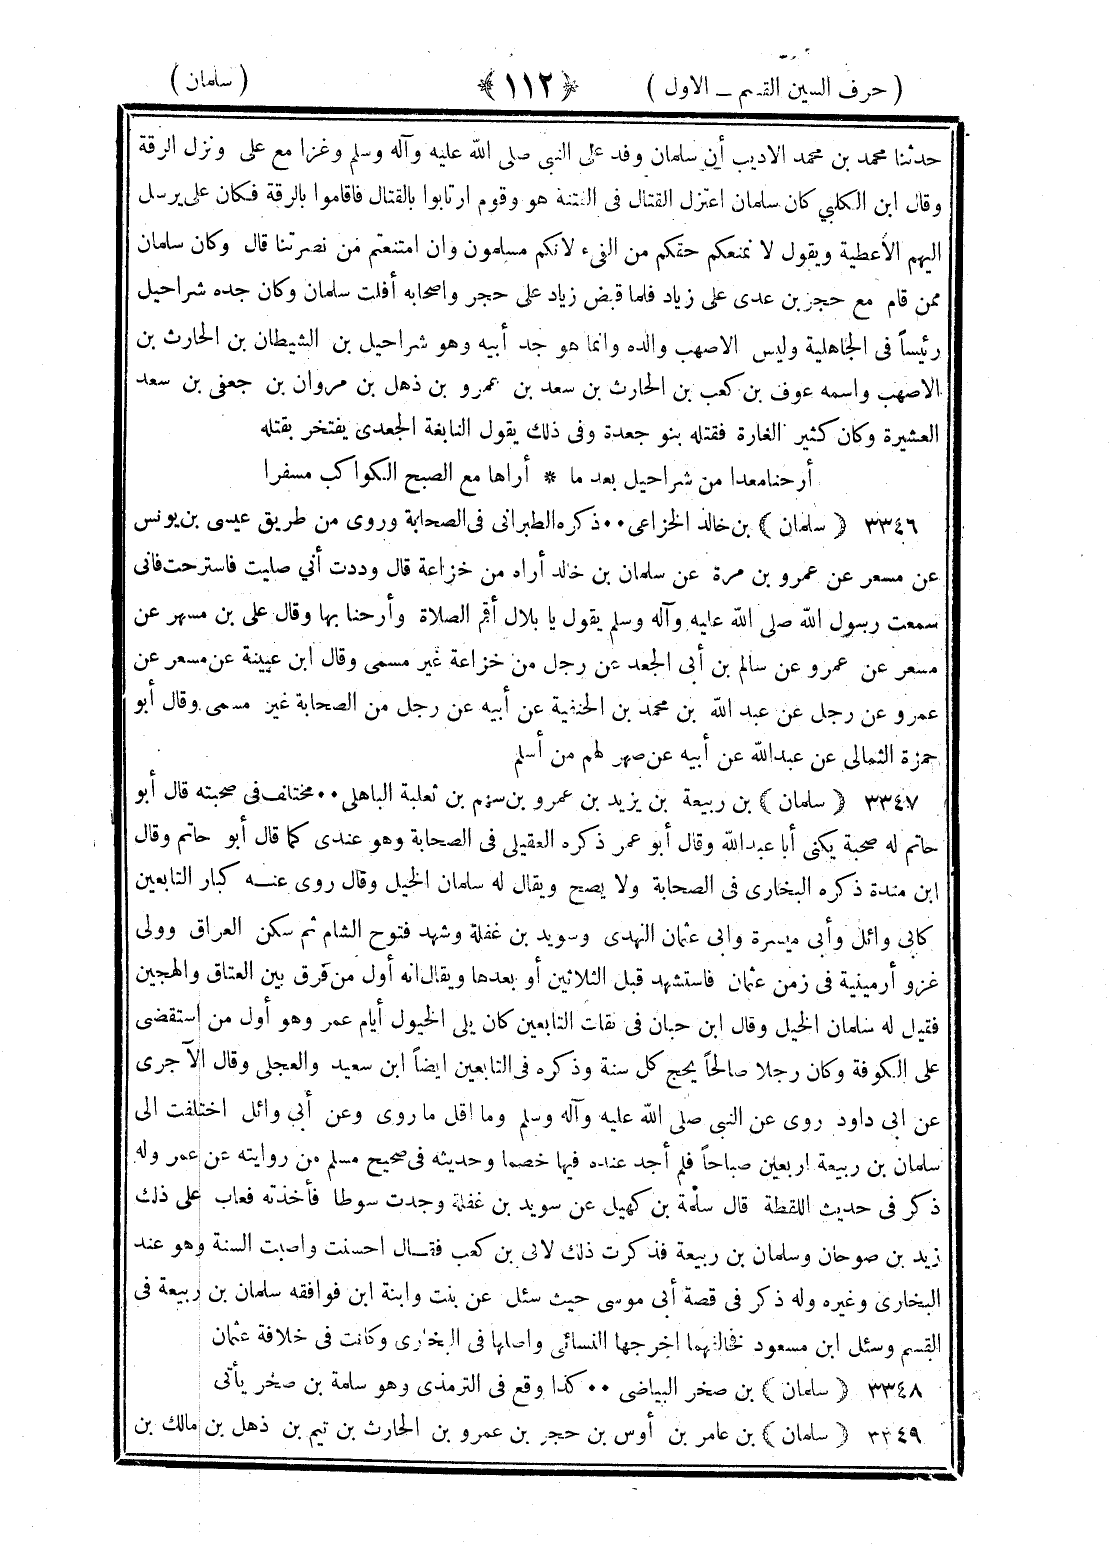 ( حرف السين القسم ــ الاول ) ﴿ ١١٢ ﴾ ( سلمان )
حدثنا محمد بن محمد الاديب أن سلمان وفد على النبى صلى الله عليه وآله وسلم وغزا مع على ونزل الرقة
وقال ابن الكلبي كان سلمان اعتزل القتال فى الفتنة هو وقوم ارتابوا بالقتال فاقاموا بالرقة فكان على يرسل
اليهم الأعطية ويقول لا نمنعكم حقكم من الفىء لانكم مسلمون وان امتنعتم من نصرتنا قال وكان سلمان
ممن قام مع حجر بن عدى على زياد فلما قبض زياد على حجر واصحابه أفلت سلمان وكان جده شراحيل
رئيساً فى الجاهلية وليس الاصهب والده وانما هو جد أبيه وهو شراحيل بن الشيطان بن الحارث بن
الاصهب واسمه عوف بن كعب بن الحارث بن سعد بن عمرو بن ذهل بن مروان بن جعفى بن سعد
العشيرة وكان كثير الغارة فقتله بنو جعدة وفى ذلك يقول النابغة الجعدى يفتخر بقتله
أرحنا معدا من شراحيل بعد ما * أراها مع الصبح الكواكب مسفرا
٣٣٤٦ ( سلمان ) بن خالد الخزاعى ٠٠ ذكره الطبرانى فى الصحابة وروى من طريق عيسى بن يونس
عن مسعر عن عمرو بن مرة عن سلمان بن خالد أراه من خزاعة قال وددت أني صليت فاسترحت فانى
سمعت رسول الله صلى الله عليه وآله وسلم يقول يا بلال أقم الصلاة وأرحنا بها وقال على بن مسهر عن
مسعر عن عمرو عن سالم بن أبى الجعد عن رجل من خزاعة غير مسمى وقال ابن عيينة عن مسعر عن
عمرو عن رجل عن عبد الله بن محمد بن الحنفية عن أبيه عن رجل من الصحابة غير مسمى وقال أبو
حمزة الثمالى عن عبدالله عن أبيه عن صهر لهم من أسلم
٣٣٤٧ ( سلمان ) بن ربيعة بن يزيد بن عمرو بن سهم بن ثعلبة الباهلى ٠٠ مختلف فى صحبته قال أبو
حاتم له صحبة يكنى أبا عبدالله وقال أبو عمر ذكره العقيلى فى الصحابة وهو عندى كما قال أبو حاتم وقال
ابن مندة ذكره البخارى فى الصحابة ولا يصح ويقال له سلمان الخيل وقال روى عنه كبار التابعين
كابى وائل وأبى ميسرة وابى عثمان النهدى وسويد بن غفلة وشهد فتوح الشام ثم سكن العراق وولى
غزو أرمينية فى زمن عثمان فاستشهد قبل الثلاثين أو بعدها ويقال انه أول من فرق بين العتاق والهجين
فقيل له سلمان الخيل وقال ابن حبان فى ثقات التابعين كان يلى الخيول أيام عمر وهو أول من استقضى
على الكوفة وكان رجلا صالحاً يحج كل سنة وذكره فى التابعين ايضاً ابن سعيد والعجلى وقال الآجرى
عن ابى داود روى عن النبى صلى الله عليه وآله وسلم وما اقل ما روى وعن أبي وائل اختلفت الى
سلمان بن ربيعة اربعين صباحاً فلم أجد عنده فيها خصما وحديثه فى صحيح مسلم من روايته عن عمر وله
ذكر فى حديث اللقطة قال سلمة بن كهيل عن سويد بن غفلة وجدت سوطا فأخذته فعاب على ذلك
زيد بن صوحان وسلمان بن ربيعة فذكرت ذلك لابى بن كعب فقال احسنت واصبت السنة وهو عند
البخارى وغيره وله ذكر فى قصة أبى موسى حيث سئل عن بنت وابنة ابن فوافقه سلمان بن ربيعة فى
القسم وسئل ابن مسعود فخالفهما اخرجها النسائى واصلها فى البخارى وكانت فى خلافة عثمان
٣٣٤٨ ( سلمان ) بن صخر البياضى ٠٠ كذا وقع فى الترمذى وهو سلمة بن صخر يأتى
٣٣٤٩ ( سلمان ) بن عامر بن أوس بن حجر بن عمرو بن الحارث بن تيم بن ذهل بن مالك بن